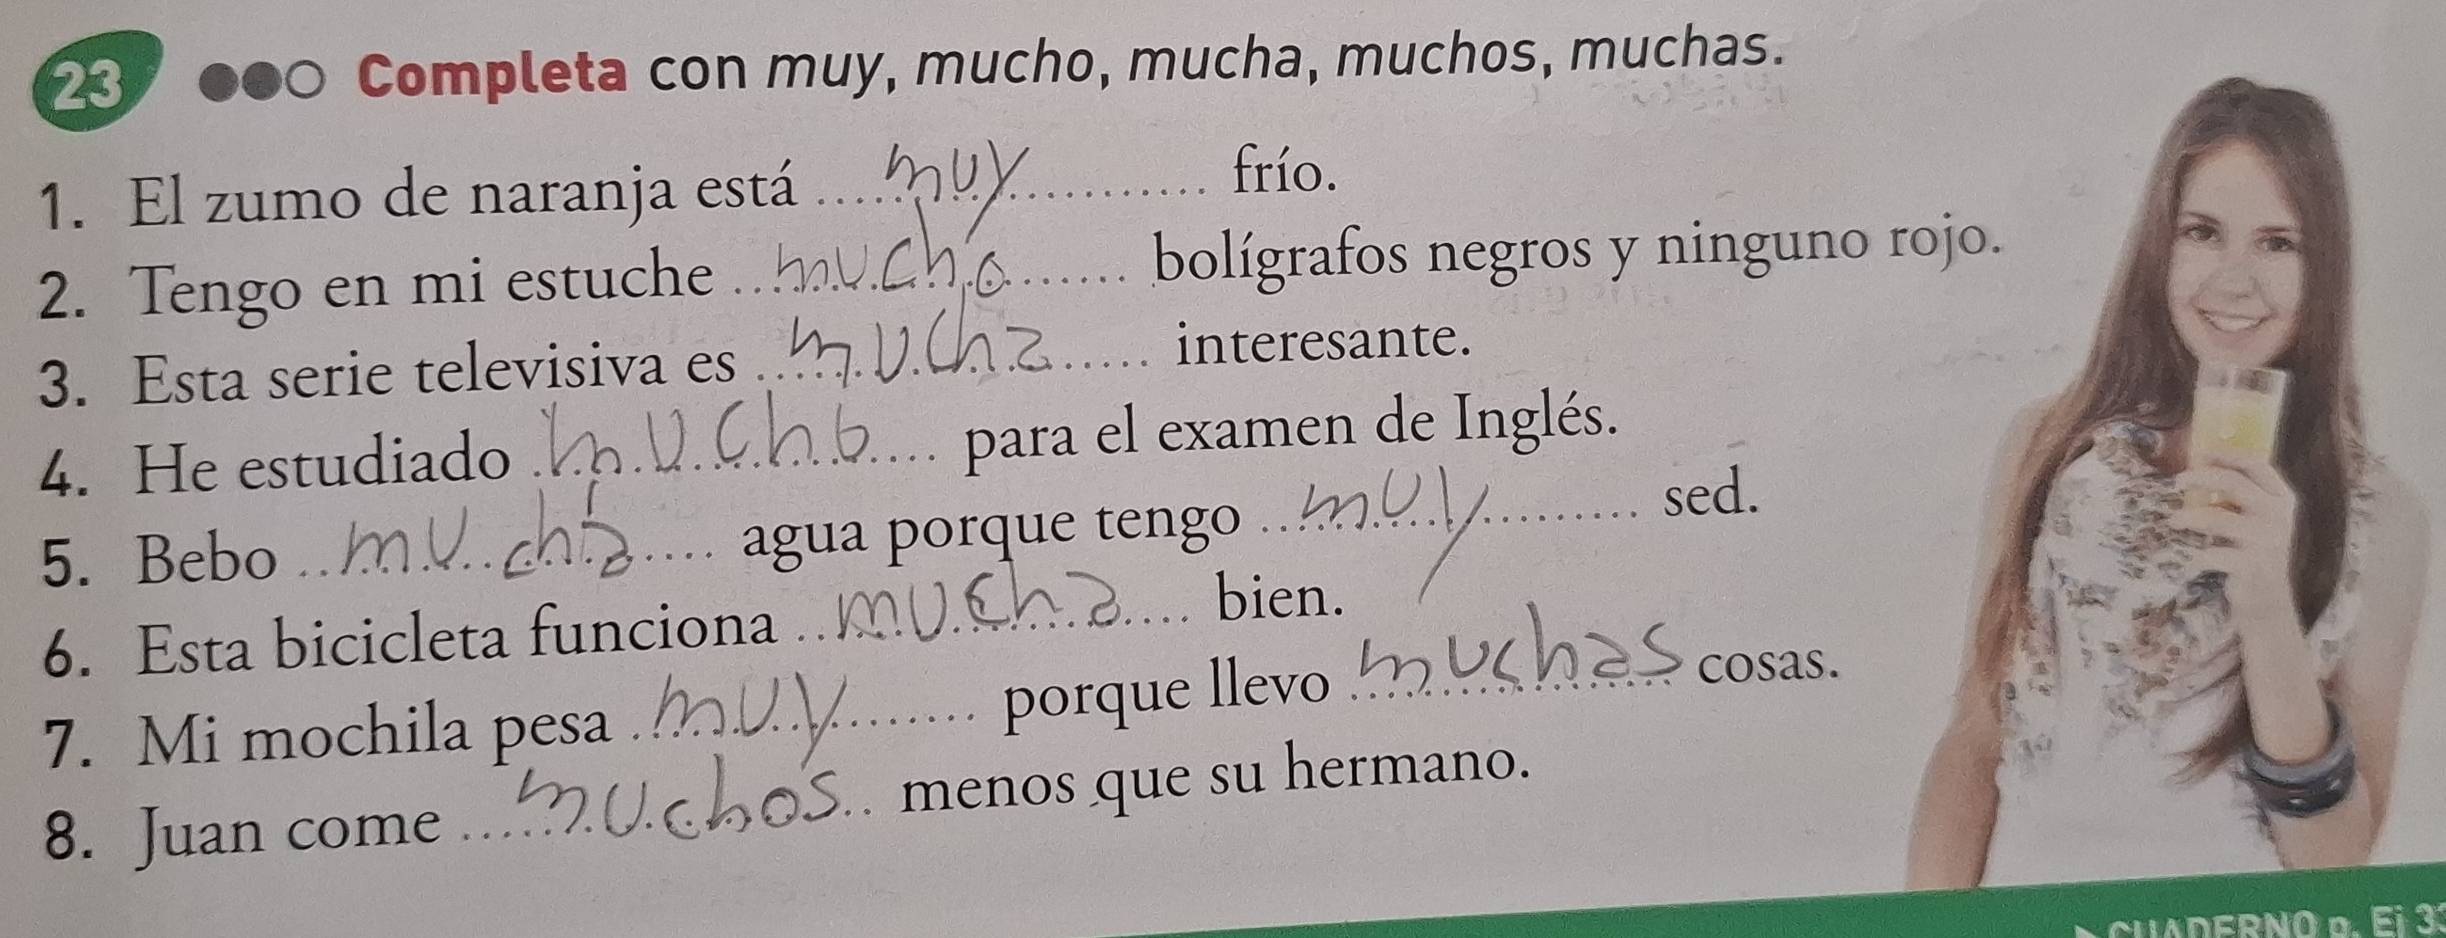 23 Completa con muy, mucho, mucha, muchos, muchas.
1. El zumo de naranja está muy frío.
2. Tengo en mi estuche mucho bolígrafos negros y ninguno rojo.
3. Esta serie televisiva es mucha interesante.
4. He estudiado mucho para el examen de Inglés.
5. Bebo mucha agua porque tengo muy sed.
6. Esta bicicleta funciona mucha bien.
7. Mi mochila pesa muy porque llevo muchas cosas.
8. Juan come muchos menos que su hermano.
CUADERNO p. Ej 33